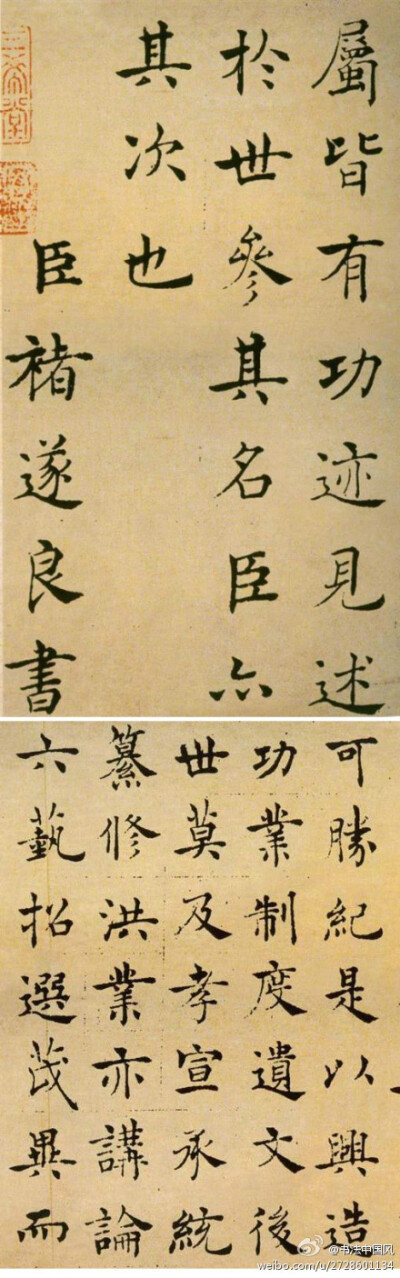 屬皆有功迹見述
於世參其名臣亦
其次也
臣褚遂良書
三希堂
可勝紀是以興造
功業制度遺文後
世莫及孝宣承統
纂修洪業亦講論
六藝招選茂異而
@书法中国风
weibo.com/u/2728601134